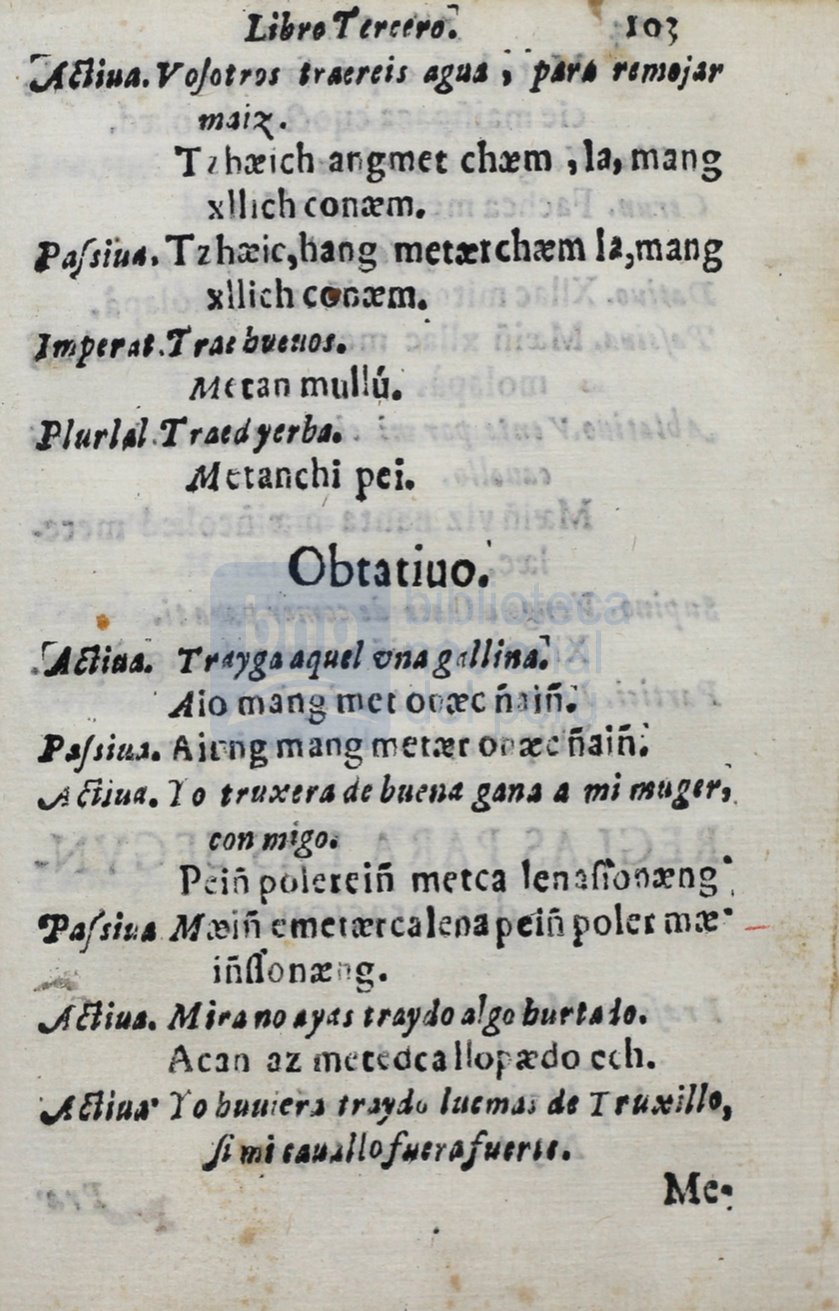 Libro Tercero. 103
Actiua. Vosotros traereis agua, para remojar
maiz.
Tzhæich angmet chæm, la, mang
xllich conæm.
Paſsiua. Tzhæic, hang metærchæm la, mang
xllich conæm.
Imperat. Trae hueuos.
Metan mullú.
Plurlal. Traed yerba.
Metanchi pei.
Obtatiuo.
Actiua. Trayga aquel vna gallina.
Aio mang met onæc ñaiñ.
Paſsiua. Aiung mang metær onæc ñaiñ.
Actiua. Yo truxera de buena gana a mi muger,
con migo.
Peiñ poleteiñ metca lenaſſonæng
Paſsiua Mæiñ emetærcalena peiñ polet mæ-
iñſſonæng.
Actiua. Mira no ayas traydo algo hurtado.
Acan az metedca llopædo ech.
Actiua Yo huuiera traydo luemas de Truxillo,
ſi mi cauallo fuera fuerte.
Me-
biblioteca
nacional
del perú